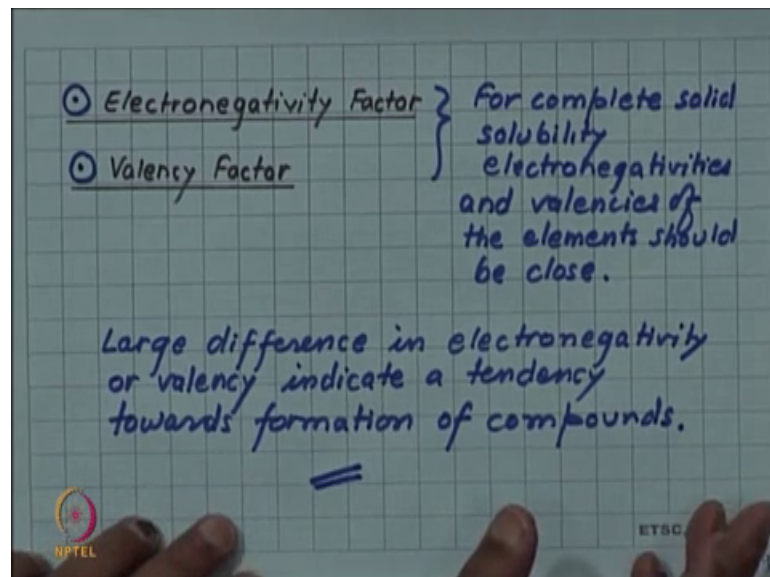 ⊙ Electronegativity Factor } For complete solid
solubility
⊙ Valency Factor electronegativities
and valencies of
the elements should
be close.
Large difference in electronegativity
or valency indicate a tendency
towards formation of compounds.
ETSC,
NPTEL